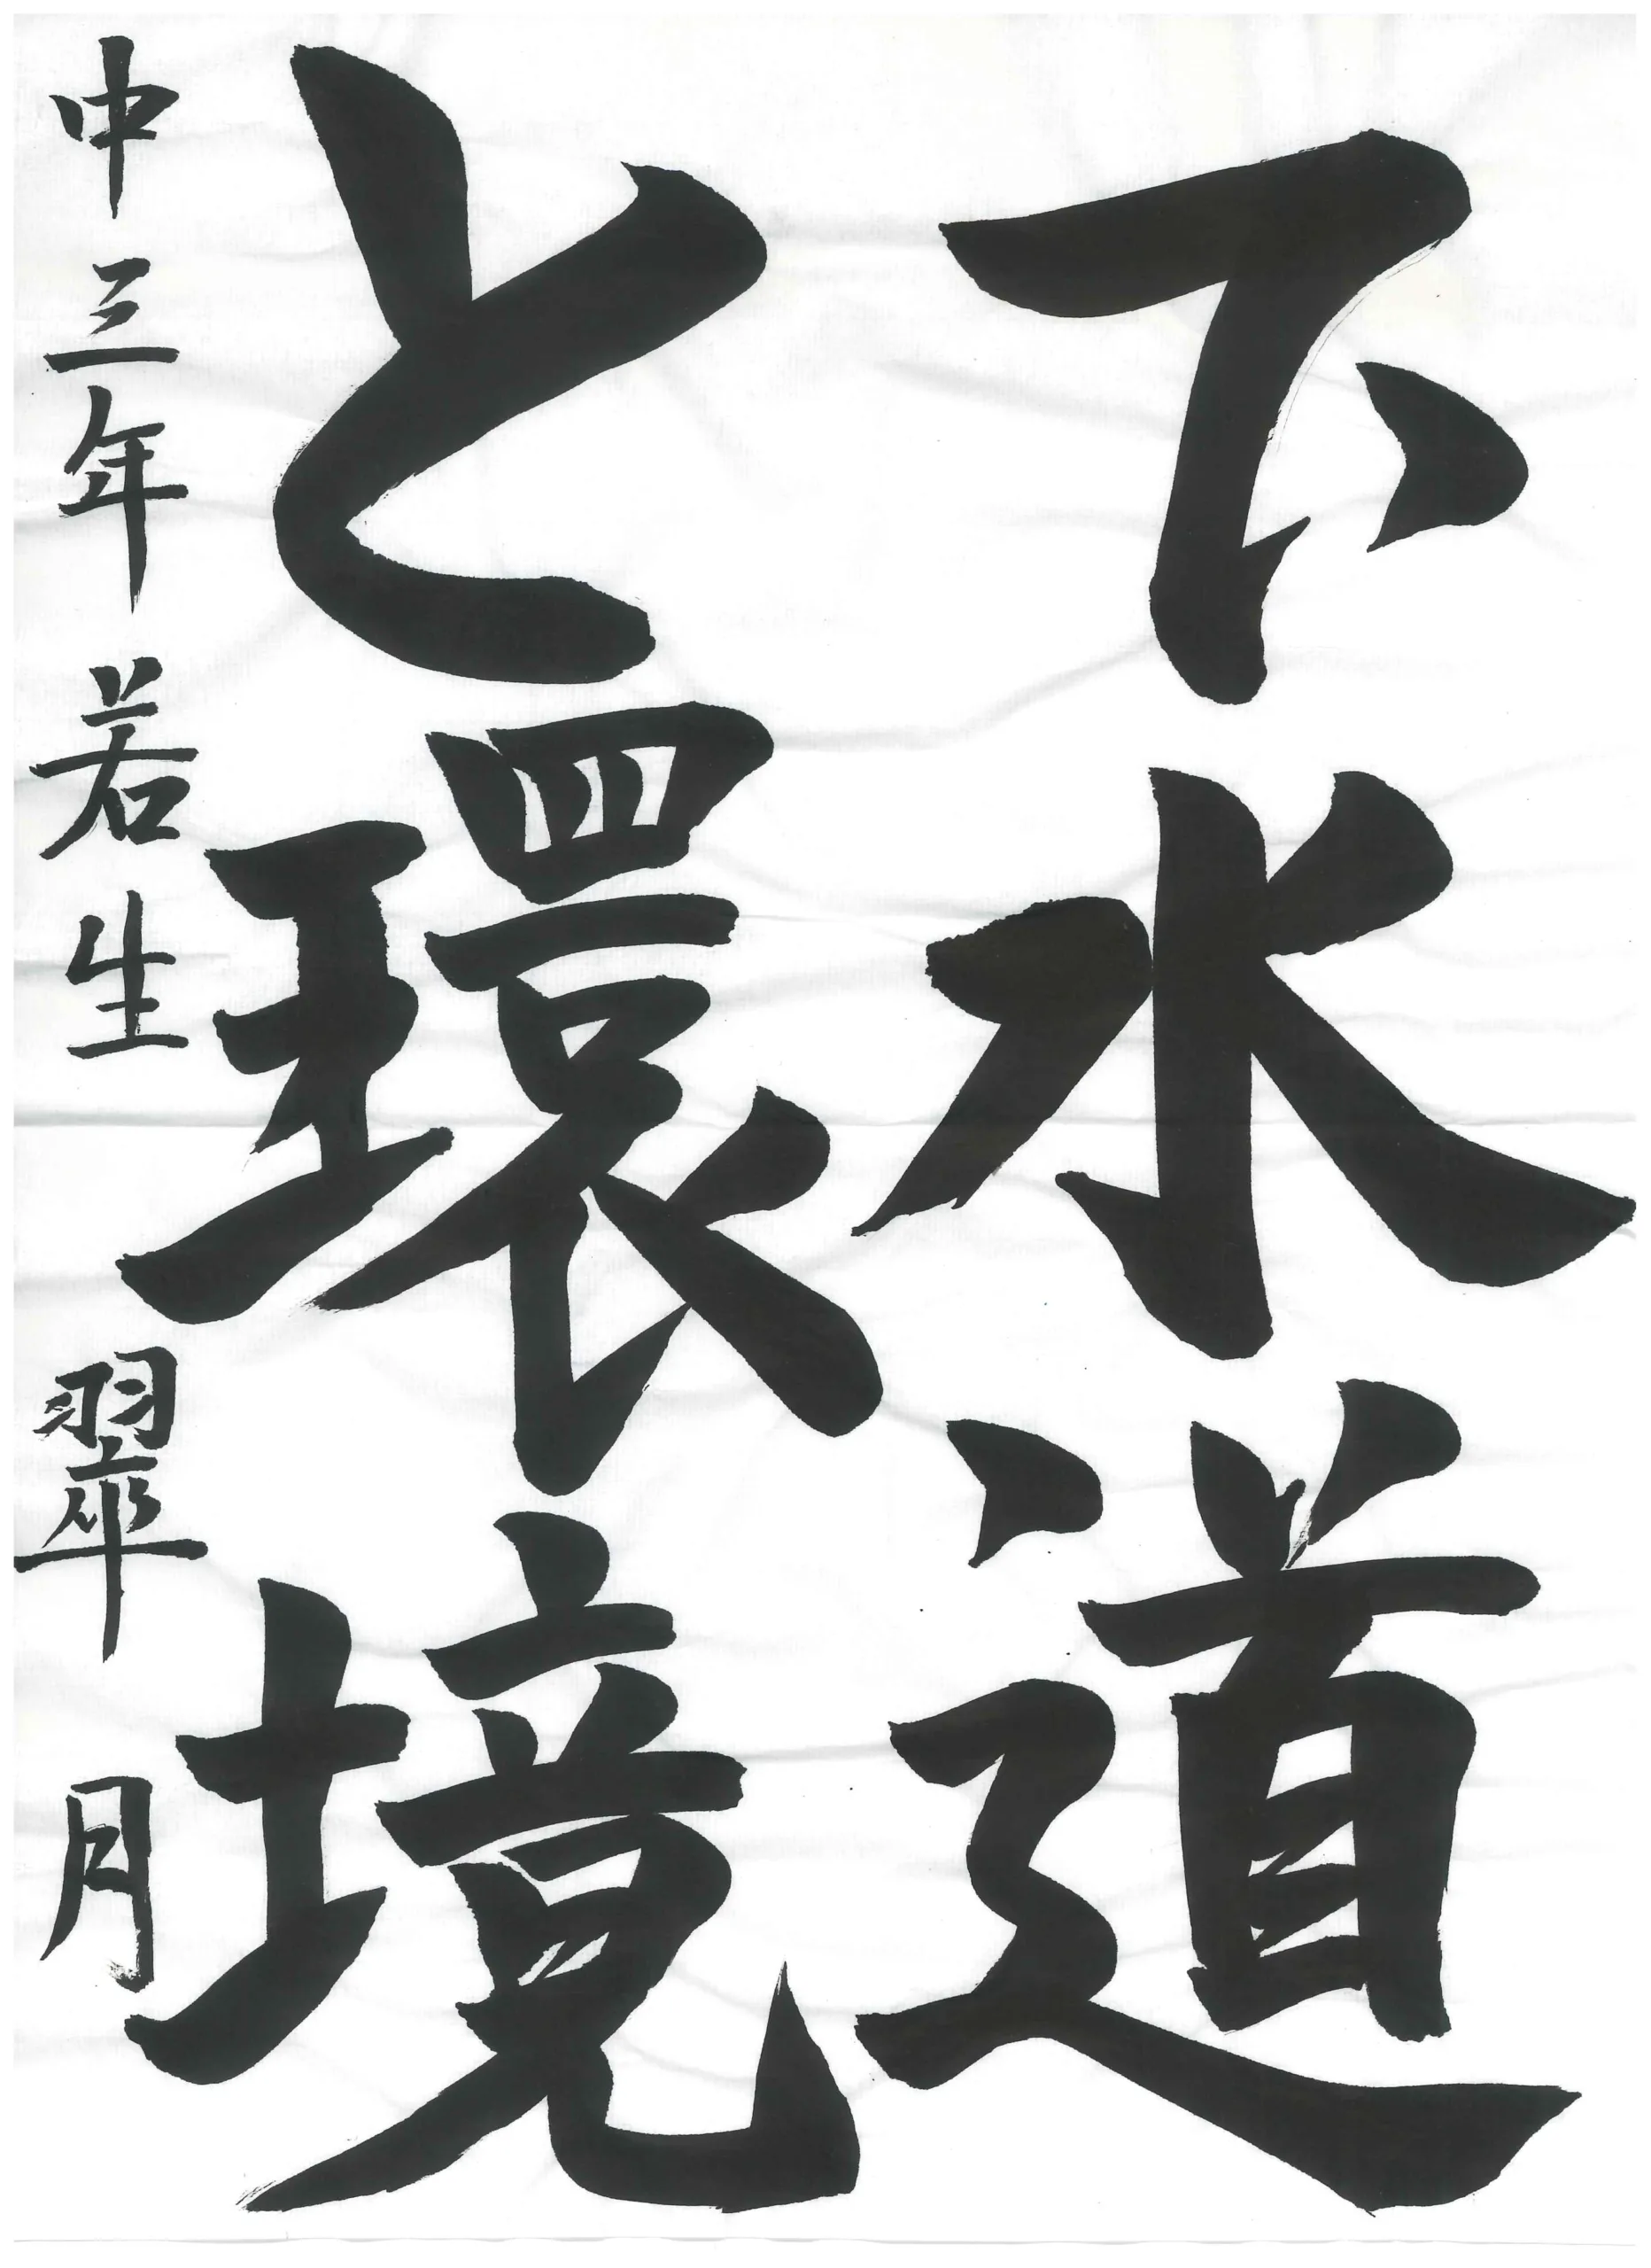 下水道
と環境
中三年 若生 翠月